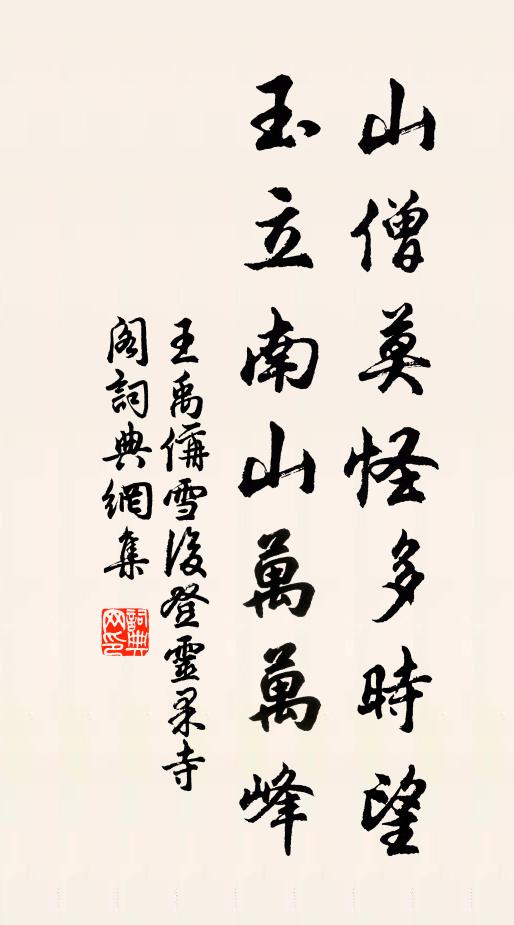 山僧莫怪多時望
玉立南山萬萬峰
王禹偁雪後登靈果寺
閣詞典網集
詞典网印